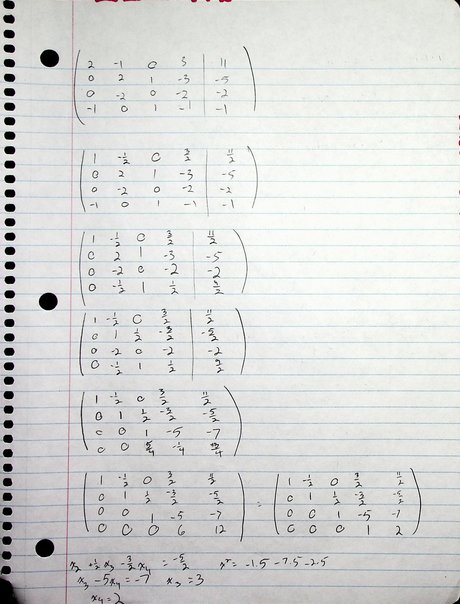 2 -1 0 3 | 11
0 2 1 -3 | -5
0 -2 0 -2 | -2
-1 0 1 -1 | -1
1 -1/2 0 3/2 | 11/2
0 2 1 -3 | -5
0 -2 0 -2 | -2
-1 0 1 -1 | -1
1 -1/2 0 3/2 | 11/2
0 2 1 -3 | -5
0 -2 0 -2 | -2
0 -1/2 1 1/2 | 9/2
1 -1/2 0 3/2 | 11/2
0 1 1/2 -3/2 | -5/2
0 -2 0 -2 | -2
0 -1/2 1 1/2 | 9/2
1 -1/2 0 3/2 11/2
0 1 1/2 -3/2 -5/2
0 0 1 -5 -7
0 0 5/4 -1/4 13/4
1 -1/2 0 3/2 11/2 = 1 -1/2 0 3/2 11/2
0 1 1/2 -3/2 -5/2 0 1 1/2 -3/2 -5/2
0 0 1 -5 -7 0 0 1 -5 -7
0 0 0 6 12 0 0 0 1 2
x2 + 1/2 x3 - 3/2 x4 = -5/2
x3 - 5x4 = -7 x3 = 3
x4 = 2